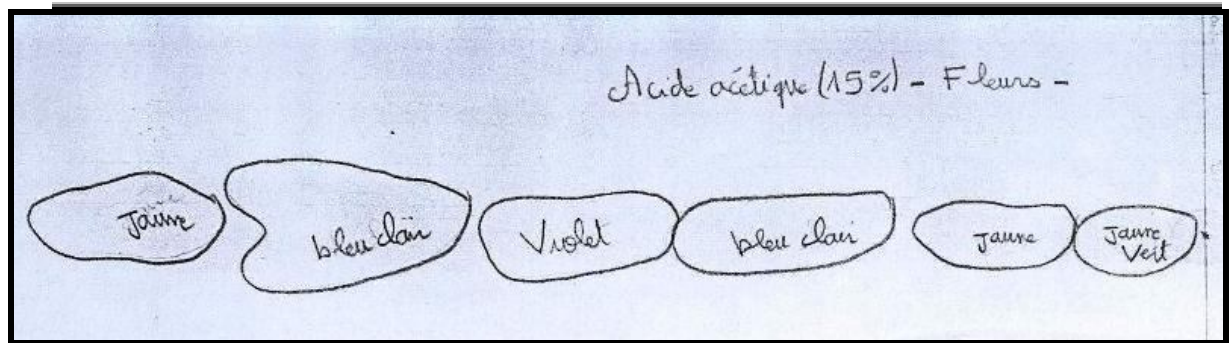 Acide acétique (15%) - Fleurs -
Jaune
bleu clair
Violet
bleu clair
Jaune
Jaune
Vert